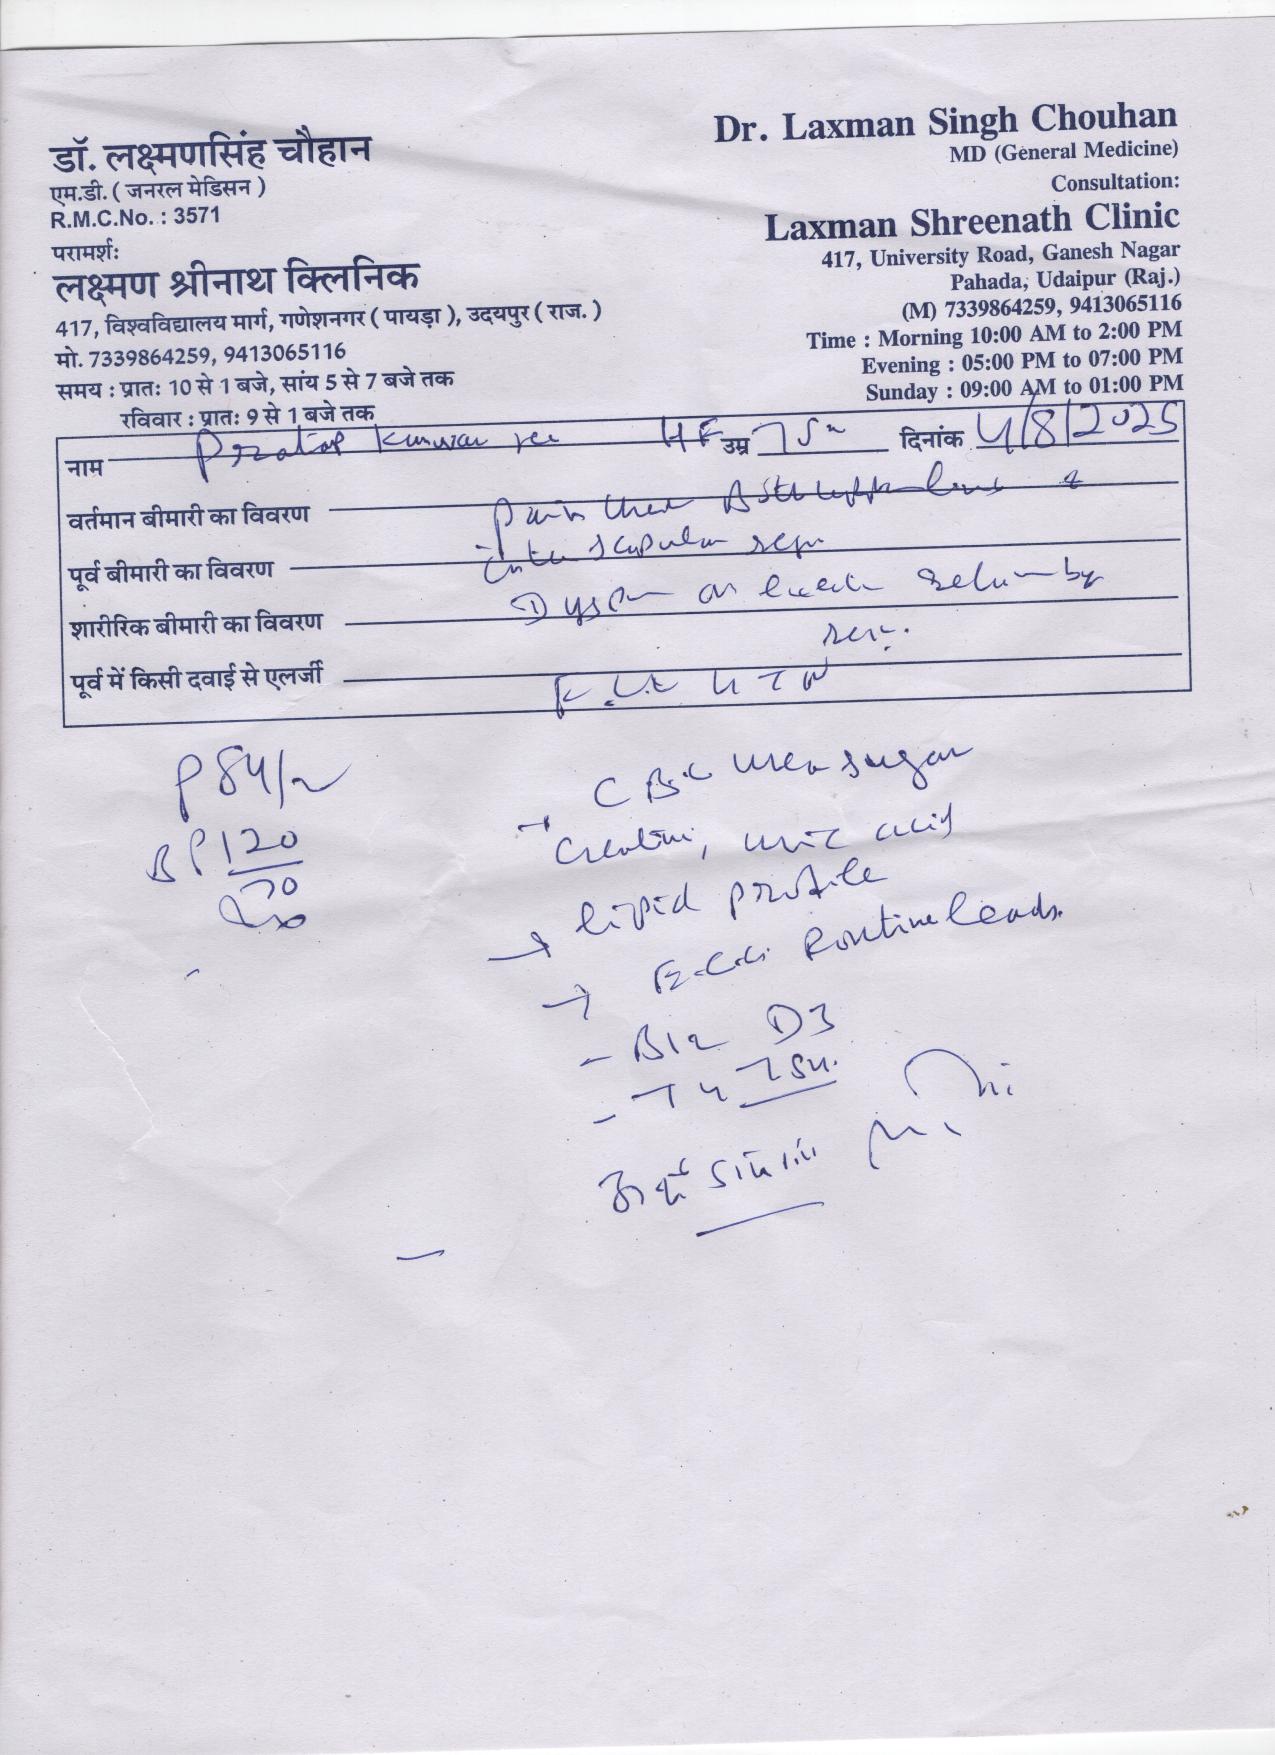 डॉ. लक्ष्मणसिंह चौहान
एम.डी. ( जनरल मेडिसन )
R.M.C.No. : 3571
परामर्शः
लक्ष्मण श्रीनाथ क्लिनिक
417, विश्वविद्यालय मार्ग, गणेशनगर ( पायड़ा ), उदयपुर ( राज. )
मो. 7339864259, 9413065116
समय : प्रातः 10 से 1 बजे, सांय 5 से 7 बजे तक
रविवार : प्रातः 9 से 1 बजे तक
Dr. Laxman Singh Chouhan
MD (General Medicine)
Consultation:
Laxman Shreenath Clinic
417, University Road, Ganesh Nagar
Pahada, Udaipur (Raj.)
(M) 7339864259, 9413065116
Time : Morning 10:00 AM to 2:00 PM
Evening : 05:00 PM to 07:00 PM
Sunday : 09:00 AM to 01:00 PM
नाम Pratap Kunwar उम्र 75 दिनांक 4/8/2025
वर्तमान बीमारी का विवरण Pain
पूर्व बीमारी का विवरण scapular
शारीरिक बीमारी का विवरण on
पूर्व में किसी दवाई से एलर्जी
HTN
P 84/
BP 120
70
CBC urea sugar
uric acid
→ lipid profile
→ E.C.G. Routine leads.
- B12 D3
- T4 TSH.